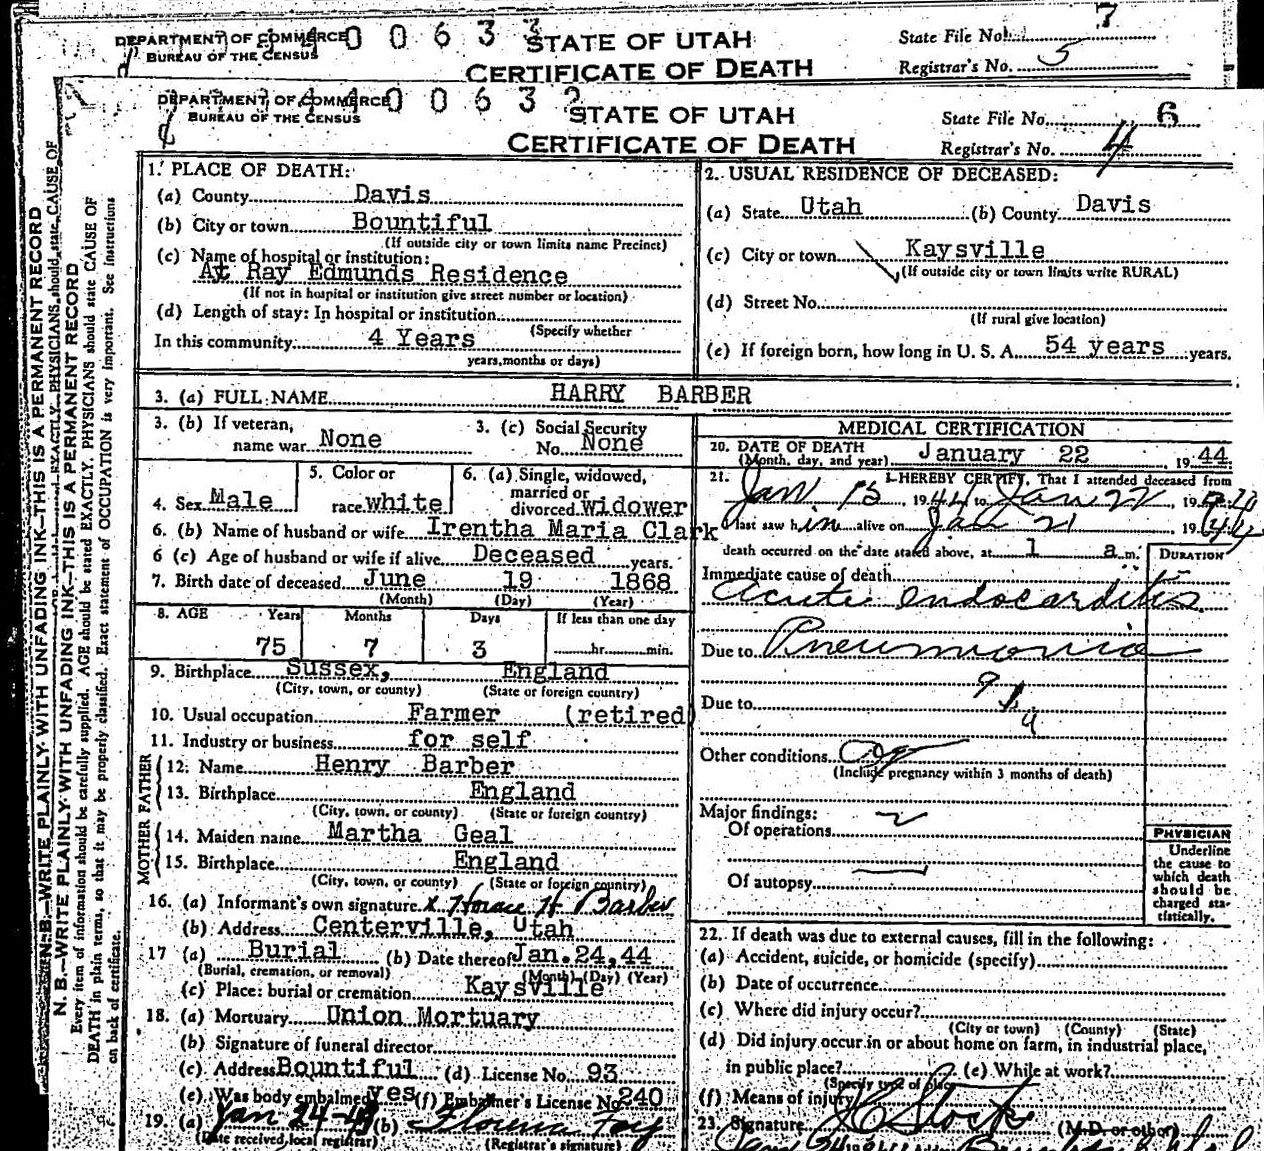 DEPARTMENT OF COMMERCE
BUREAU OF THE CENSUS
STATE OF UTAH
CERTIFICATE OF DEATH
State File No. 7
Registrar's No. 5
DEPARTMENT OF COMMERCE
BUREAU OF THE CENSUS
STATE OF UTAH
CERTIFICATE OF DEATH
State File No. 6
Registrar's No. 4
N. B.—WRITE PLAINLY WITH UNFADING INK—THIS IS A PERMANENT RECORD
Every item of information should be carefully supplied. AGE should be stated EXACTLY. PHYSICIANS should state CAUSE OF
DEATH in plain terms, so that it may be properly classified. Exact statement of OCCUPATION is very important. See instructions
on back of certificate.
1. PLACE OF DEATH:
(a) County Davis
(b) City or town Bountiful
(If outside city or town limits name Precinct)
(c) Name of hospital or institution:
At Ray Edmunds Residence
(If not in hospital or institution give street number or location)
(d) Length of stay: In hospital or institution
(Specify whether
In this community 4 Years
years, months or days)
2. USUAL RESIDENCE OF DECEASED:
(a) State Utah (b) County Davis
(c) City or town Kaysville
(If outside city or town limits write RURAL)
(d) Street No.
(If rural give location)
(e) If foreign born, how long in U. S. A. 54 years years.
3. (a) FULL NAME HARRY BARBER
3. (b) If veteran, name war None
3. (c) Social Security No. None
4. Sex Male
5. Color or race white
6. (a) Single, widowed, married or divorced widower
6. (b) Name of husband or wife Irentha Maria Clark
6 (c) Age of husband or wife if alive Deceased years.
7. Birth date of deceased June 19 1868
(Month) (Day) (Year)
8. AGE Years Months Days If less than one day
75 7 3 hr. min.
9. Birthplace Sussex, England
(City, town, or county) (State or foreign country)
10. Usual occupation Farmer (retired)
11. Industry or business for self
FATHER
12. Name Henry Barber
13. Birthplace England
(City, town, or county) (State or foreign country)
MOTHER
14. Maiden name Martha Geal
15. Birthplace England
(City, town, or county) (State or foreign country)
16. (a) Informant's own signature x Horace H Barber
(b) Address Centerville, Utah
17 (a) Burial (b) Date thereof Jan. 24, 44
(Burial, cremation, or removal) (Month) (Day) (Year)
(c) Place: burial or cremation Kaysville
18. (a) Mortuary Union Mortuary
(b) Signature of funeral director
(c) Address Bountiful (d) License No. 93
(e) Was body embalmed yes (f) Embalmer's License No 240
19. (a) Jan 24 (b)
(Date received local registrar) (Registrar's signature)
MEDICAL CERTIFICATION
20. DATE OF DEATH January 22, 1944
(Month, day, and year)
21. I HEREBY CERTIFY, That I attended deceased from
Jan 15 1944 to Jan 22 19
I last saw him alive on Jan 21 1944
death occurred on the date stated above, at 1 a m.
DURATION
Immediate cause of death
Acute endocarditis
Due to Pneumonia
Due to
Other conditions
(Include pregnancy within 3 months of death)
Major findings:
Of operations
Of autopsy
PHYSICIAN
Underline
the cause to
which death
should be
charged sta-
tistically.
22. If death was due to external causes, fill in the following:
(a) Accident, suicide, or homicide (specify)
(b) Date of occurrence
(c) Where did injury occur?
(City or town) (County) (State)
(d) Did injury occur in or about home on farm, in industrial place,
in public place? (e) While at work?
(Specify type of place)
(f) Means of injury
23. Signature (M.D. or other)